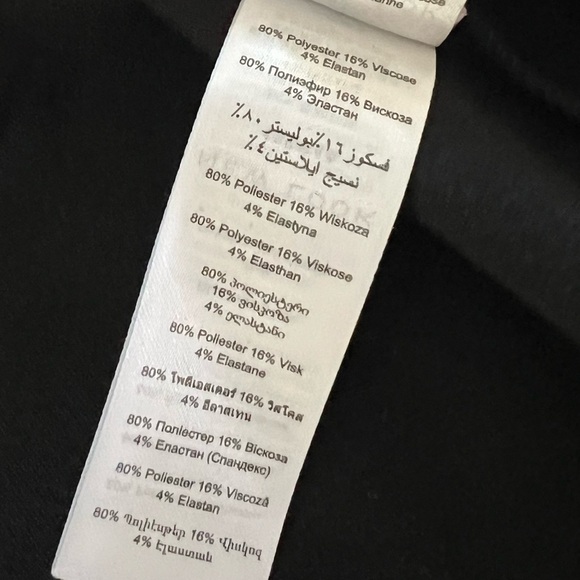 80% Polyester 16% Viscose
4% Elastan
80% Полиэфир 16% Вискоза
4% Эластан
فسكوز ١٦٪ بوليستر ٨٠٪
نسيج ايلاستين ٤٪
80% Poliester 16% Wiskoza
4% Elastyna
80% Polyester 16% Viskose
4% Elasthan
80% პოლიესტერი
16% ვისკოზა
4% ელასტანი
80% Poliester 16% Visk
4% Elastane
80% โพลีเอสเตอร์ 16% วิสโคส
4% อีลาสเทน
80% Поліестер 16% Віскоза
4% Еластан (Спандекс)
80% Poliester 16% Viscoză
4% Elastan
80% Պոլիէսթեր 16% Վիսկոզ
4% Էլաստան